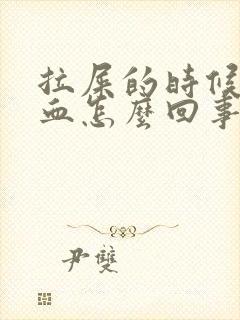 拉屎的時候
血怎麼回事
尹雙